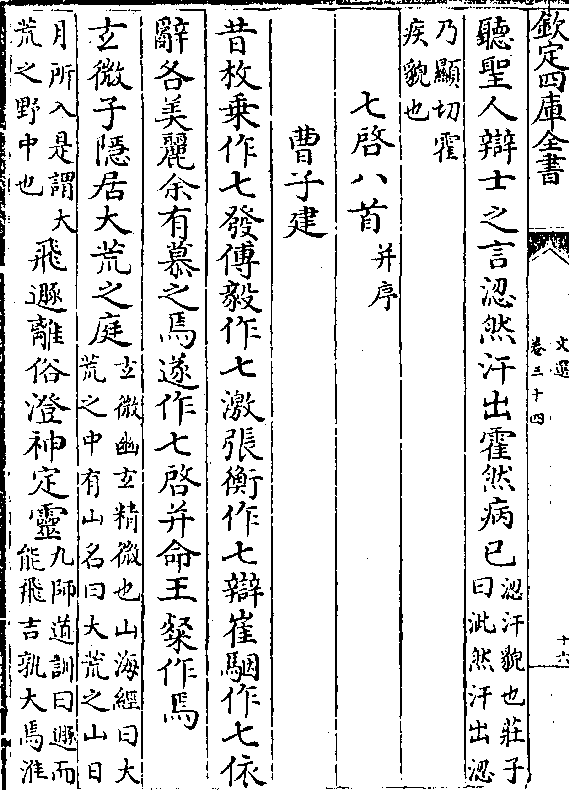 欽定四庫全書
文選
卷三十四
十六
聽聖人辯士之言涊然汗出霍然病已
涊汗貌也莊子
曰泚然汗出涊
乃顯切霍
疾貌也
七啓八首
并序
曹子建
昔枚乗作七發傅毅作七激張衡作七辯崔駰作七依
辭各美麗余有慕之焉遂作七啓并命王粲作焉
玄微子隱居大荒之庭
玄微幽玄精微也山海經曰大
荒之中有山名曰大荒之山日
月所入是謂大
荒之野中也
飛遯離俗澄神定靈
九師道訓曰遯而
能飛吉孰大焉淮